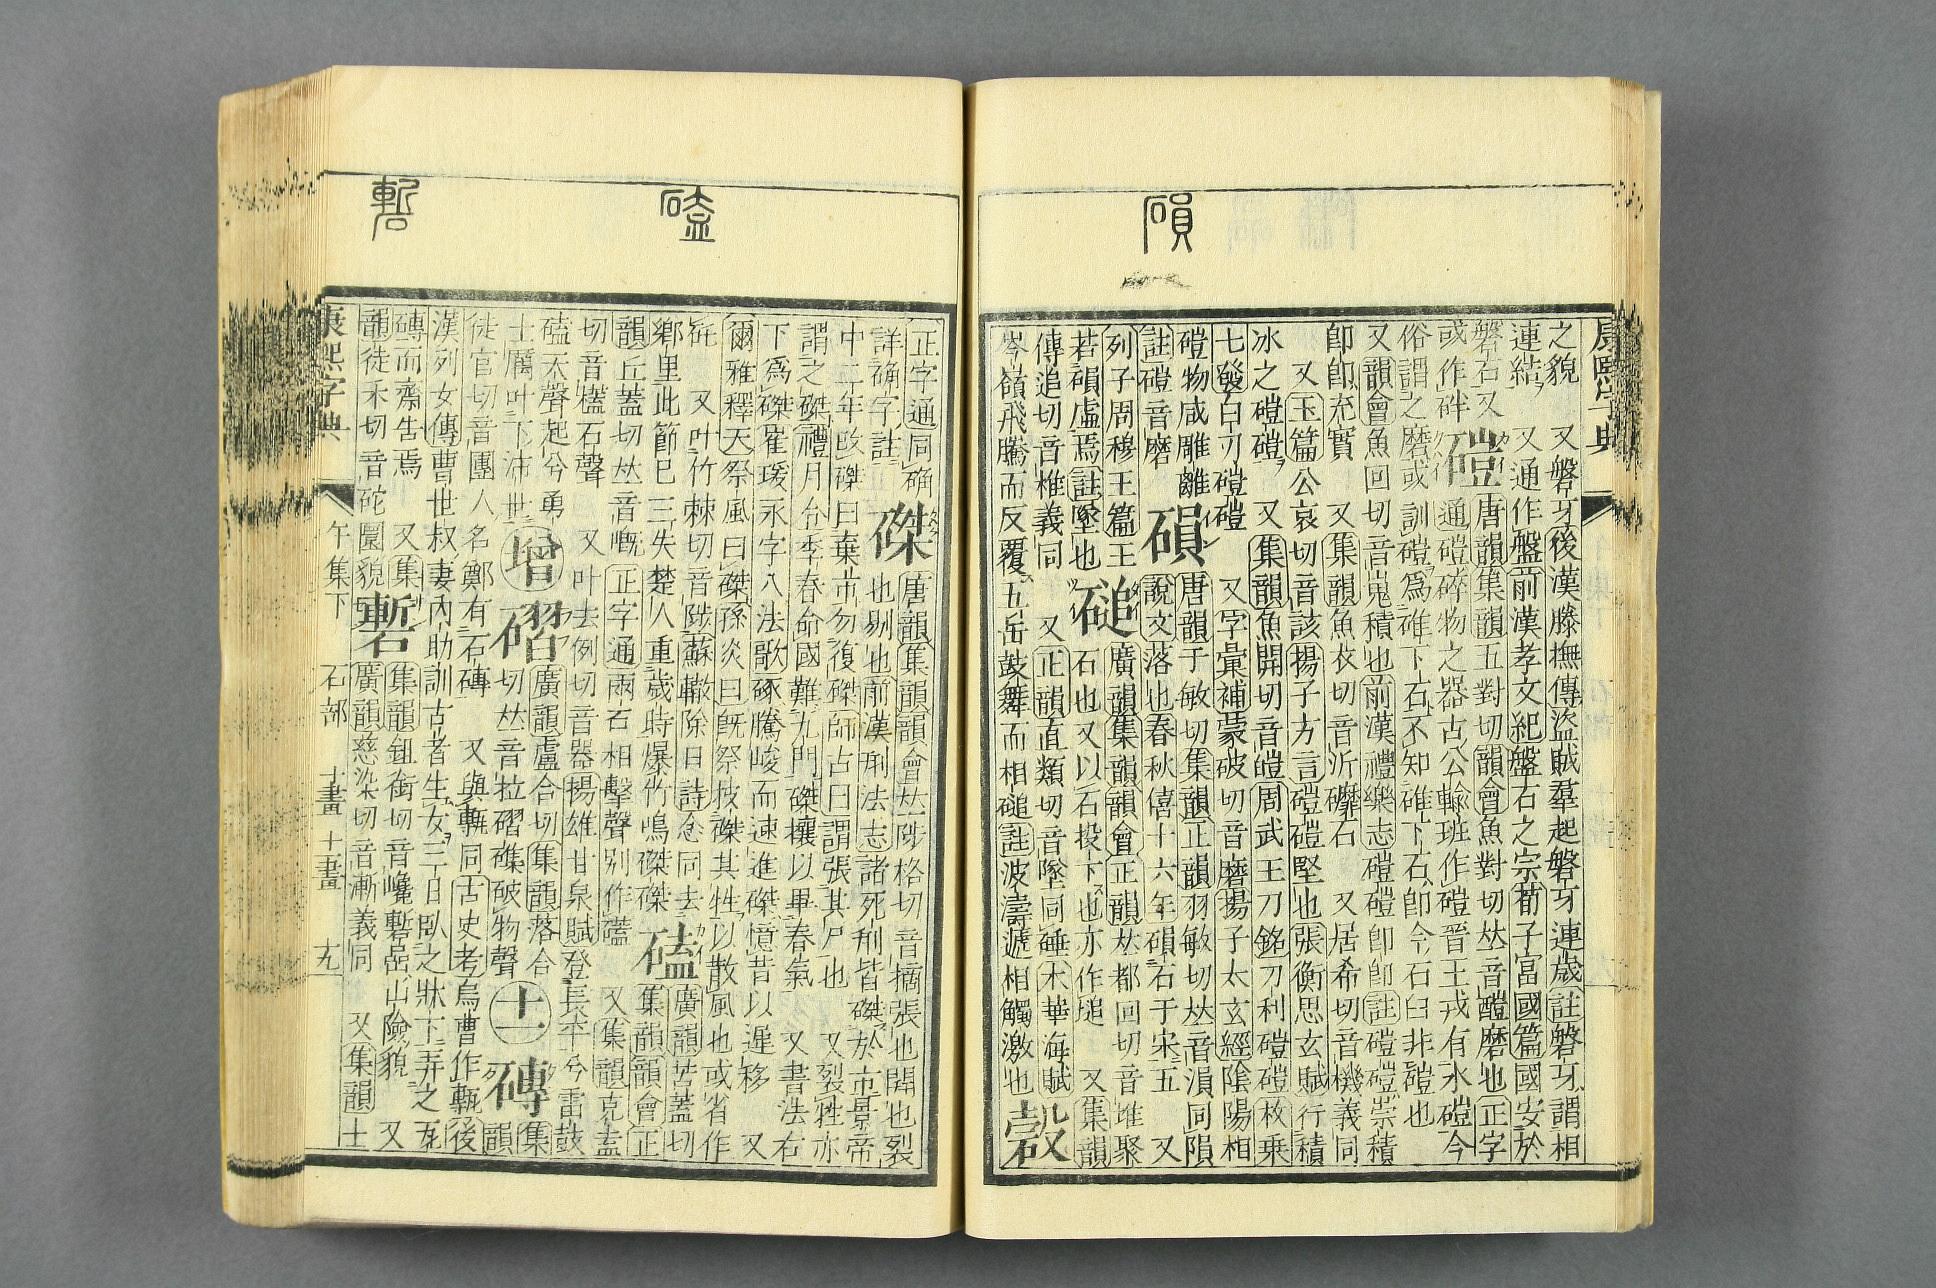 磒
之貌 又磐牙後漢滕撫傳盜賊羣起磐牙連歲註磐牙謂相
連結 又通作盤前漢孝文紀盤石之宗荀子富國篇國安於
磐石又
磑
唐韻集韻五對切韻會魚對切𠀤音醴磨也正字
通磑碎物之器古公輸班作磑晉王戎有水磑今
或作䃑
俗謂之磨或訓磑爲碓下石不知碓下石卽今石臼非磑也
又韻會魚回切音嵬積也前漢禮樂志磑磑卽卽註磑磑崇積
卽卽充實 又集韻魚衣切音沂䃺石 又居希切音機義同
又玉篇公哀切音該揚子方言磑磑堅也張衡思玄賦行積
冰之磑磑 又集韻魚開切音皚周武王刀銘刀利磑磑枚乗
七發白刃磑磑 又字彙補蒙破切音磨揚子太玄經陰陽相
磑物咸雕離
磒
唐韻于敏切集韻正韻羽敏切𠀤音溳同隕
說文落也春秋僖十六年磒石于宋五 又
註磑音磨
列子周穆王篇王
若磒虛焉註墜也
磓
廣韻集韻韻會正韻𠀤都回切音堆聚
石也又以石投下也亦作塠 又集韻
傳追切音椎義同 又正韻直類切音墜同硾木華海賦
岑嶺飛騰而反覆五岳鼓舞而相磓註波濤遞相觸激也
㲄
康熙字典
磕
塹
正字通同确
詳确字註
磔
唐韻集韻韻會𠀤陟格切音摘張也開也裂
也剔也前漢刑法志諸死刑皆磔於市景帝
中二年改磔曰棄市勿復磔師古曰謂張其尸也 又裂牲亦
謂之磔禮月令季春命國難九門磔攘以畢春氣 又書法右
下爲磔崔瑗永字八法歌啄騰㖊而速進磔憶昔以遲移 又
爾雅釋天祭風曰磔孫炎曰旣祭披磔其牲以散風也或省作
矺 又叶竹棘切音陟蘇轍除日詩念同去
鄉里此節巳三失楚人重歲時爆竹鳴磔磔
磕
廣韻苦蓋切
集韻韻會正
韻丘蓋切𠀤音嘅正字通兩石相擊聲别作礚 又集韻克盍
切音榼石聲 又叶去例切音器揚雄甘泉賦登長平兮雷鼓
磕天聲起兮勇
士厲叶下沛世
增
磖
廣韻盧合切集韻落合
切𠀤音拉磖磼破物聲
十一
磚
集
韻
徒官切音團人名鄭有石磚 又與甎同古史考烏曹作甎後
漢列女傳曹世叔妻內助訓古者生女三日臥之牀下弄之瓦
磚而齋告焉 又集
韻徒禾切音砣圜貌
磛
集韻鉏銜切音巉磛嵒山險貌 又
廣韻慈染切音漸義同 又集韻士
康熙字典
午集下
石部
十畫
十畫
十九